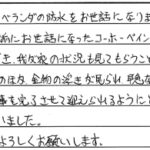 ベランダの防水をお世話になりま
派にお世話になったコーホーペイン
き、我が家の状況も見てもらうこと
のほか、金物の浮きが見られ、早急な
事を完了させて迎えられるようにと
いました。
よろしくお願いします。